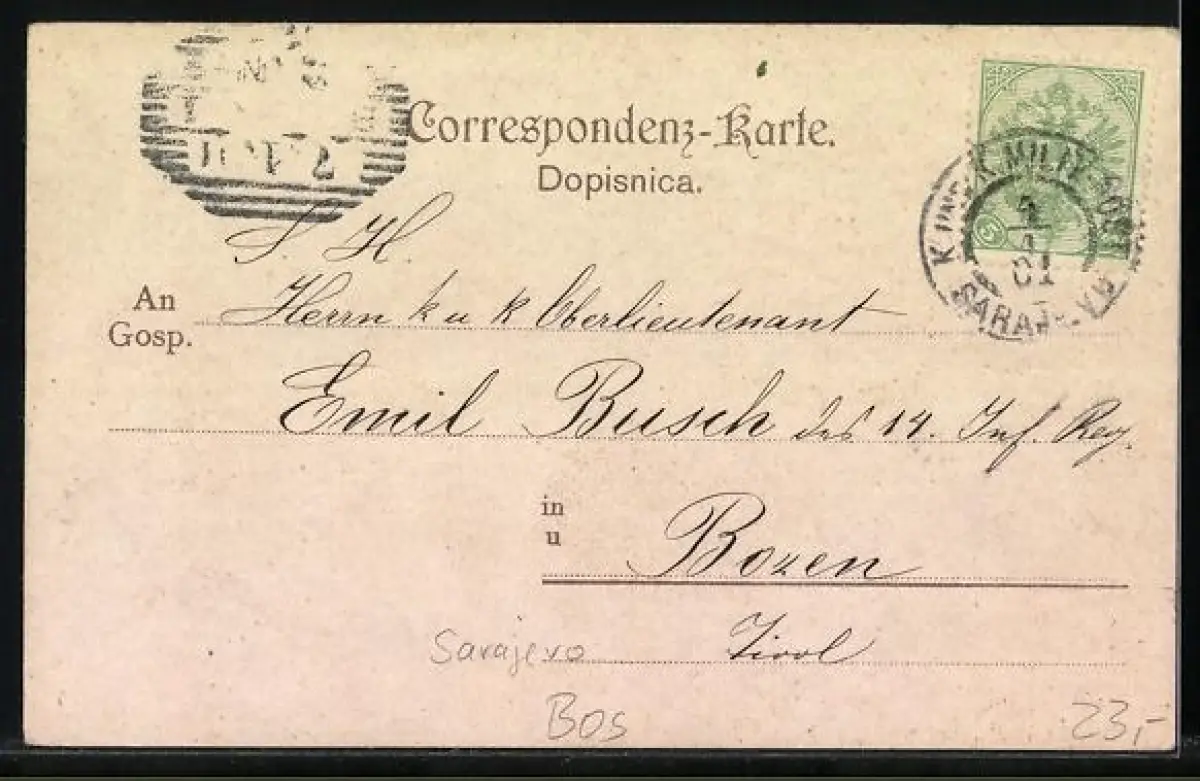 Correspondenz-Karte.
Dopisnica.
S. H.
An
Gosp.
Herrn k u k Oberlieutenant
Emil Busch des 14. Inf. Reg.
in
u
Bozen
Tirol
Sarajevo
BOS
23,-
K. UND K. MILIT. POST
1
01
SARAJEVO
5
7 1 01